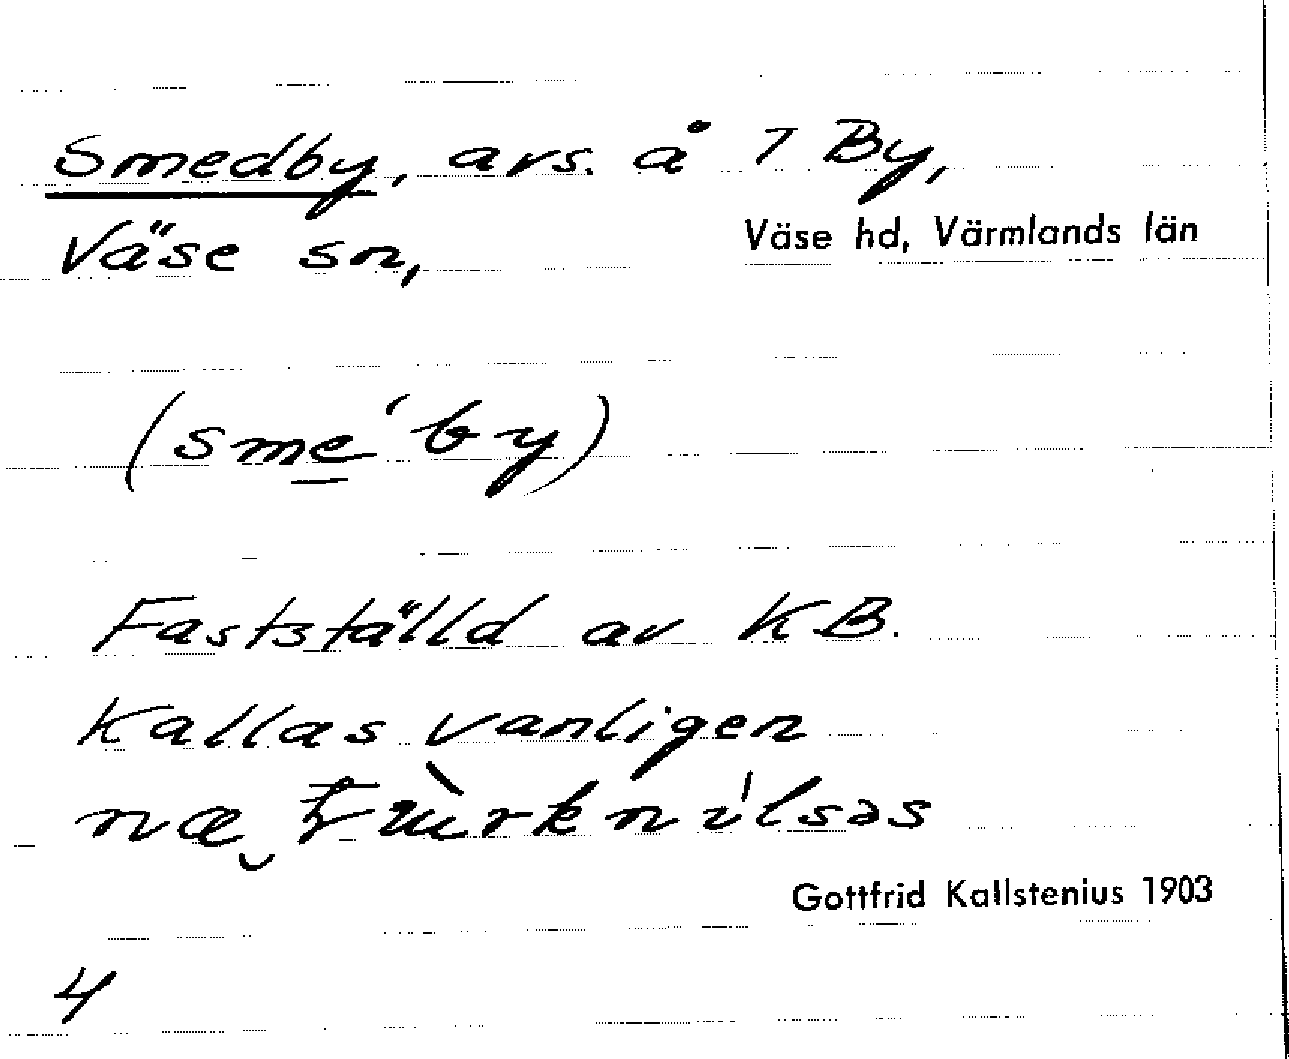 Smedby, avs. å 7 By,
Väse sn, Väse hd, Värmlands län
(sme´by)
Fastställd av KB.
Kallas vanligen
Gottfrid Kallstenius 1903
4